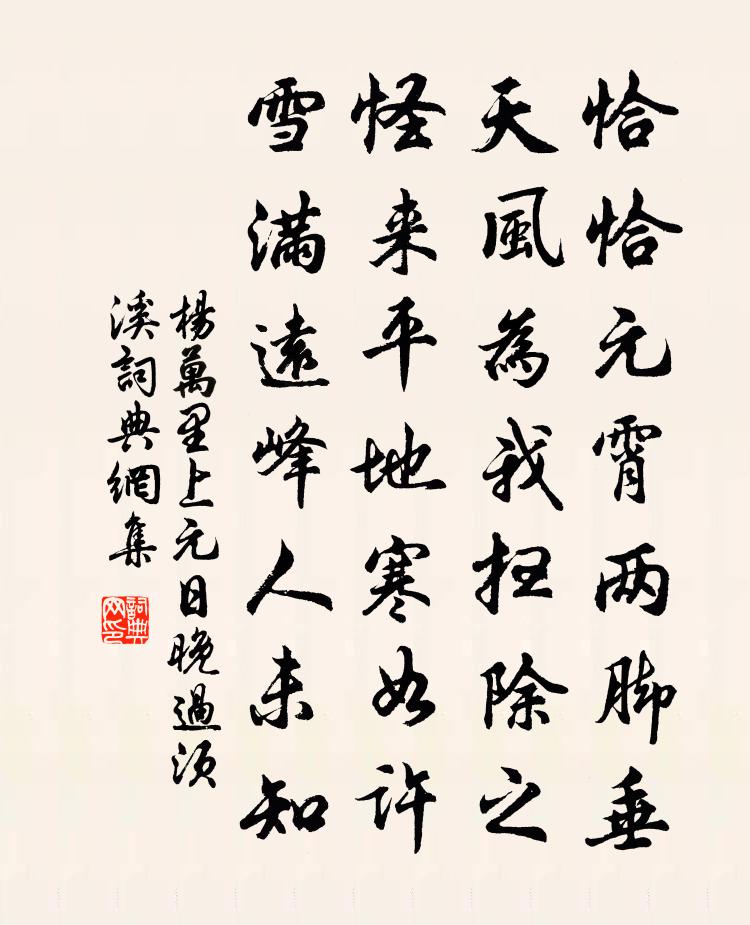 恰恰元霄两脚垂
天風為我扫除之
怪来平地寒如许
雪满遠峰人未知
楊萬里上元日晚過須
溪詞典網集
詞典
网印